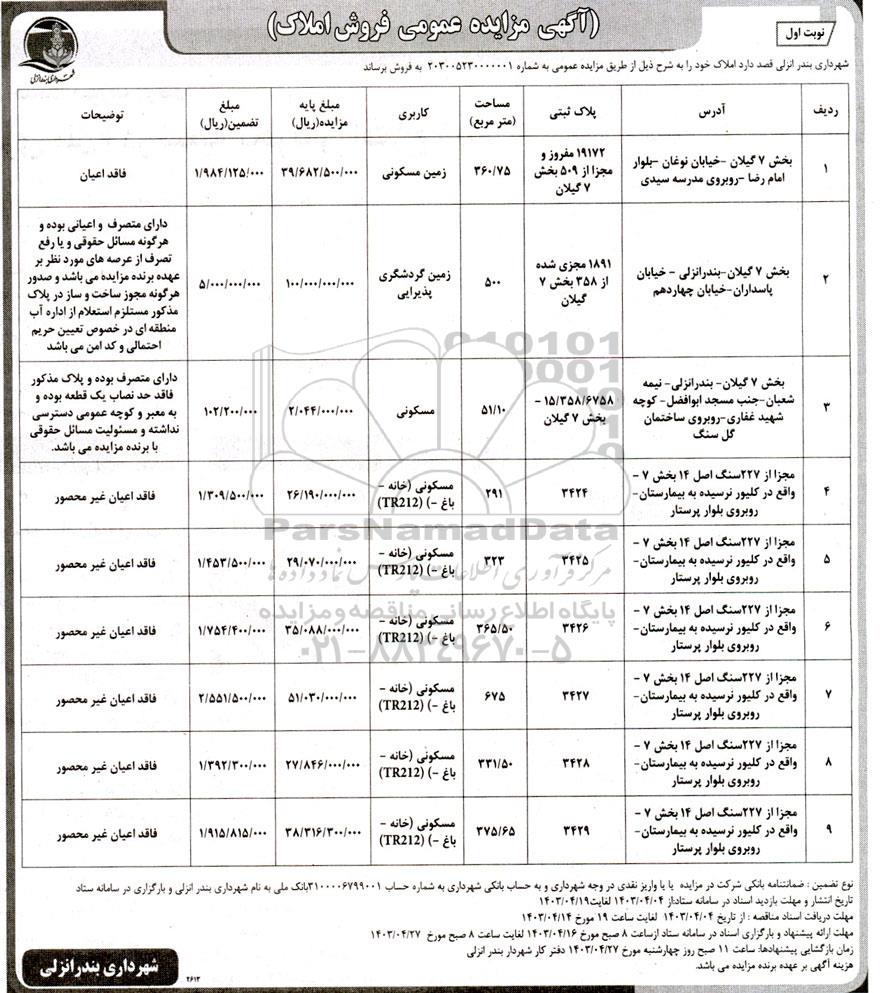 (آگهی مزایده عمومی فروش املاک)
نوبت اول
شهرداری بندرانزلی
شهرداری بندر انزلی قصد دارد املاک خود را به شرح ذیل از طریق مزایده عمومی به شماره ۲۰۳۰۰۵۲۳۰۰۰۰۰۰۱ به فروش برساند
ردیف	آدرس	پلاک ثبتی	مساحت (متر مربع)	کاربری	مبلغ پایه مزایده(ریال)	مبلغ تضمین(ریال)	توضیحات
۱	بخش ۷ گیلان -خیابان نوغان -بلوار امام رضا -روبروی مدرسه سیدی	۱۹۱۷۲ مفروز و مجزا از ۵۰۹ بخش ۷ گیلان	۳۶۰/۷۵	زمین مسکونی	۳۹/۶۸۲/۵۰۰/۰۰۰	۱/۹۸۴/۱۲۵/۰۰۰	فاقد اعیان
۲	بخش ۷ گیلان-بندرانزلی - خیابان پاسداران-خیابان چهاردهم	۱۸۹۱ مجزی شده از ۳۵۸ بخش ۷ گیلان	۵۰۰	زمین گردشگری پذیرایی	۱۰۰/۰۰۰/۰۰۰/۰۰۰	۵/۰۰۰/۰۰۰/۰۰۰	دارای متصرف و اعیانی بوده و هرگونه مسائل حقوقی و یا رفع تصرف از عرصه های مورد نظر بر عهده برنده مزایده می باشد و صدور هرگونه مجوز ساخت و ساز در پلاک مذکور مستلزم استعلام از اداره آب منطقه ای در خصوص تعیین حریم احتمالی و کد امن می باشد
۳	بخش ۷ گیلان- بندرانزلی- نیمه شعبان-جنب مسجد ابوافضل- کوچه شهید غفاری-روبروی ساختمان گل سنگ	۱۵/۳۵۸/۶۷۵۸ - بخش ۷ گیلان	۵۱/۱۰	مسکونی	۲/۰۴۴/۰۰۰/۰۰۰	۱۰۲/۲۰۰/۰۰۰	دارای متصرف بوده و پلاک مذکور فاقد حد نصاب یک قطعه بوده و به معبر و کوچه عمومی دسترسی نداشته و مسئولیت مسائل حقوقی با برنده مزایده می باشد.
۴	مجزا از ۲۲۷سنگ اصل ۱۴ بخش ۷ - واقع در کلیور نرسیده به بیمارستان- روبروی بلوار پرستار	۳۴۲۴	۲۹۱	مسکونی (خانه - باغ -) (TR212)	۲۶/۱۹۰/۰۰۰/۰۰۰	۱/۳۰۹/۵۰۰/۰۰۰	فاقد اعیان غیر محصور
۵	مجزا از ۲۲۷سنگ اصل ۱۴ بخش ۷ - واقع در کلیور نرسیده به بیمارستان- روبروی بلوار پرستار	۳۴۲۵	۳۲۳	مسکونی (خانه - باغ -) (TR212)	۲۹/۰۷۰/۰۰۰/۰۰۰	۱/۴۵۳/۵۰۰/۰۰۰	فاقد اعیان غیر محصور
۶	مجزا از ۲۲۷سنگ اصل ۱۴ بخش ۷ - واقع در کلیور نرسیده به بیمارستان- روبروی بلوار پرستار	۳۴۲۶	۳۶۵/۵۰	مسکونی (خانه - باغ -) (TR212)	۳۵/۰۸۸/۰۰۰/۰۰۰	۱/۷۵۴/۴۰۰/۰۰۰	فاقد اعیان غیر محصور
۷	مجزا از ۲۲۷سنگ اصل ۱۴ بخش ۷ - واقع در کلیور نرسیده به بیمارستان- روبروی بلوار پرستار	۳۴۲۷	۶۷۵	مسکونی (خانه - باغ -) (TR212)	۵۱/۰۳۰/۰۰۰/۰۰۰	۲/۵۵۱/۵۰۰/۰۰۰	فاقد اعیان غیر محصور
۸	مجزا از ۲۲۷سنگ اصل ۱۴ بخش ۷ - واقع در کلیور نرسیده به بیمارستان- روبروی بلوار پرستار	۳۴۲۸	۳۳۱/۵۰	مسکونی (خانه - باغ -) (TR212)	۲۷/۸۴۶/۰۰۰/۰۰۰	۱/۳۹۲/۳۰۰/۰۰۰	فاقد اعیان غیر محصور
۹	مجزا از ۲۲۷سنگ اصل ۱۴ بخش ۷ - واقع در کلیور نرسیده به بیمارستان- روبروی بلوار پرستار	۳۴۲۹	۳۷۵/۶۵	مسکونی (خانه - باغ -) (TR212)	۳۸/۳۱۶/۳۰۰/۰۰۰	۱/۹۱۵/۸۱۵/۰۰۰	فاقد اعیان غیر محصور
ParsNamadData
مرکز فرآوری اطلاعات پارس نماد داده ها
پایگاه اطلاع رسانی مناقصه و مزایده
۰۲۱-۸۸۳۴۹۶۷۰-۵
نوع تضمین : ضمانتنامه بانکی شرکت در مزایده یا با واریز نقدی در وجه شهرداری و به حساب بانکی شهرداری به شماره حساب ۳۱۰۰۰۰۶۷۹۹۰۰۱بانک ملی به نام شهرداری بندر انزلی و بارگزاری در سامانه ستاد
تاریخ انتشار و مهلت بازدید اسناد در سامانه ستاد:از ۱۴۰۳/۰۴/۰۴ لغایت۱۴۰۳/۰۴/۱۹
مهلت دریافت اسناد مناقصه : از تاریخ ۱۴۰۳/۰۴/۰۴ لغایت ساعت ۱۹ مورخ ۱۴۰۳/۰۴/۱۴
مهلت ارائه پیشنهاد و بارگزاری اسناد در سامانه ستاد ازساعت ۸ صبح مورخ ۱۴۰۳/۰۴/۱۶ لغایت ساعت ۸ صبح مورخ ۱۴۰۳/۰۴/۲۷
زمان بازگشایی پیشنهادها: ساعت ۱۱ صبح روز چهارشنبه مورخ ۱۴۰۳/۰۴/۲۷ دفتر کار شهردار بندر انزلی
هزینه آگهی بر عهده برنده مزایده می باشد.
شهرداری بندرانزلی
۲۶۱۳